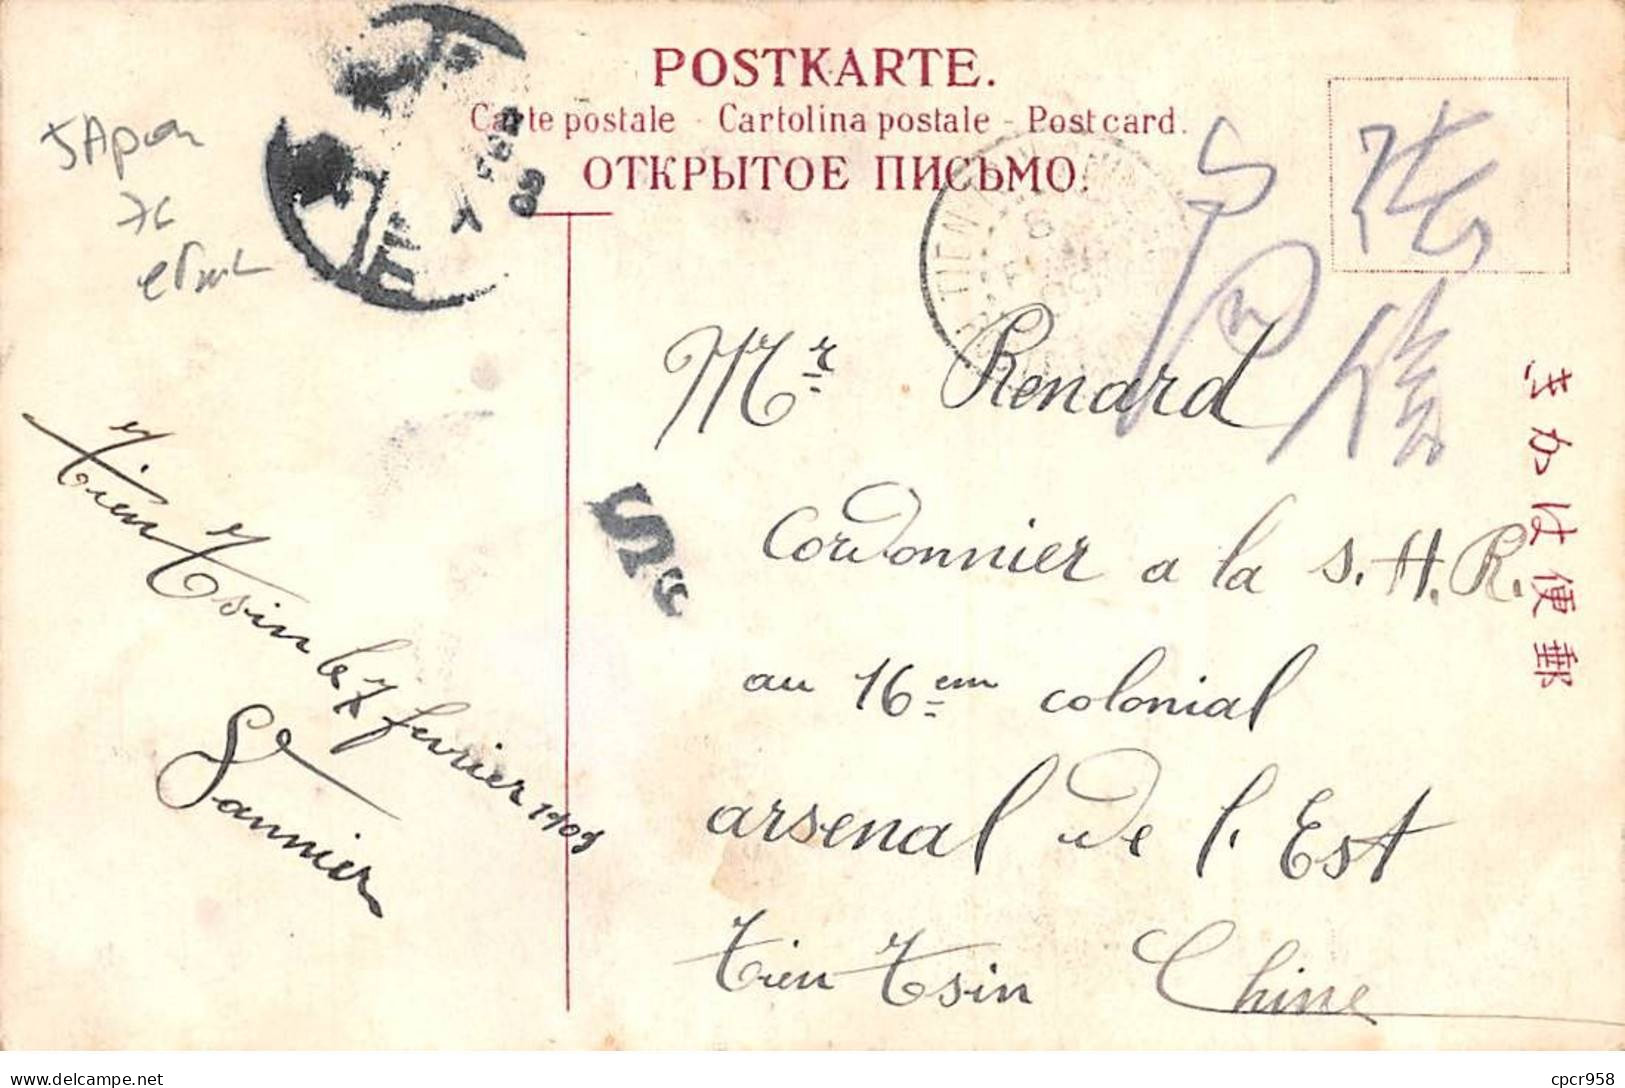 POSTKARTE.
Carte postale - Cartolina postale - Post card.
ОТКРЫТОЕ ПИСЬМО.
JApon
TIEN
きかは便郵
Mr Renard
Cordonnier a la S.H.R.
au 16em colonial
arsenal de l'Est
Tien Tsin Chine
Tien Tsin le 7 fevrier 1909
Sannier
delcampe.net
cpcr958